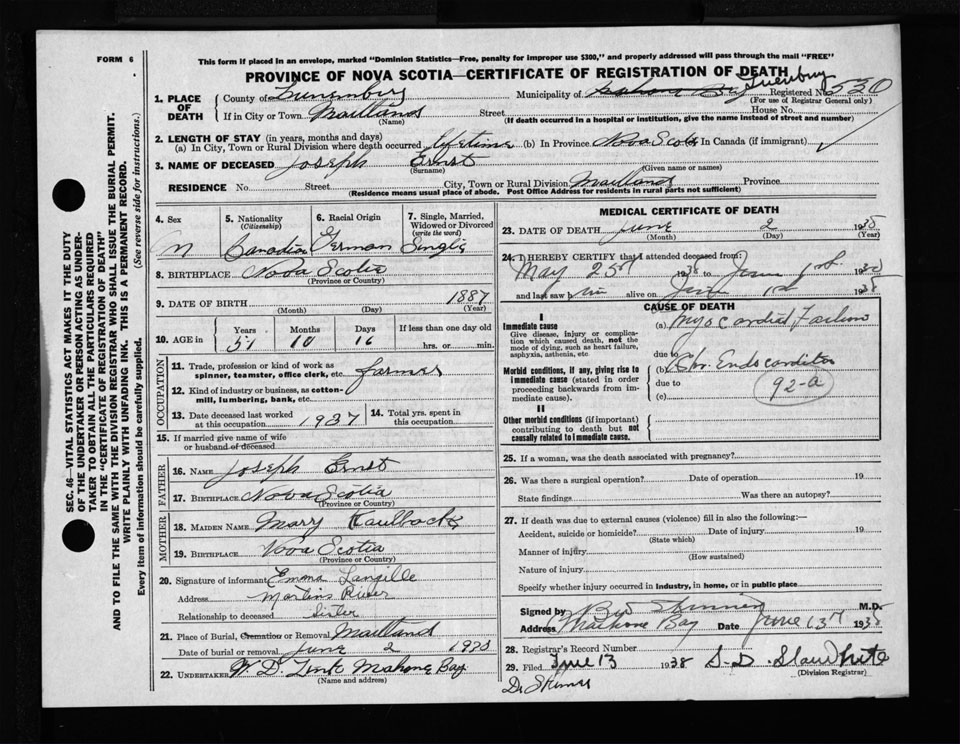 FORM 6
This form if placed in an envelope, marked "Dominion Statistics—Free, penalty for improper use $300," and properly addressed will pass through the mail "FREE"
PROVINCE OF NOVA SCOTIA—CERTIFICATE OF REGISTRATION OF DEATH
1. PLACE OF DEATH County of Lunenburg Municipality of Lunenburg Registered No. 530
(For use of Registrar General only)
If in City or Town Maitland Street House No.
(Name) (If death occurred in a hospital or institution, give the name instead of street and number)
2. LENGTH OF STAY (in years, months and days)
(a) In City, Town or Rural Division where death occurred lifetime (b) In Province Nova Scotia In Canada (if immigrant)
3. NAME OF DECEASED Joseph Ernst
(Surname) (Given name or names)
RESIDENCE No. Street City, Town or Rural Division Maitland Province
(Residence means usual place of abode. Post Office Address for residents in rural parts not sufficient)
4. Sex M
5. Nationality (Citizenship) Canadian
6. Racial Origin German
7. Single, Married, Widowed or Divorced (write the word) Single
8. BIRTHPLACE Nova Scotia
(Province or Country)
9. DATE OF BIRTH 1887
(Month) (Day) (Year)
10. AGE in Years Months Days If less than one day old
51 10 16 hrs. or min.
OCCUPATION
11. Trade, profession or kind of work as spinner, teamster, office clerk, etc. farmer
12. Kind of industry or business, as cotton-mill, lumbering, bank, etc.
13. Date deceased last worked at this occupation 1937
14. Total yrs. spent in this occupation
15. If married give name of wife or husband of deceased
FATHER
16. NAME Joseph Ernst
17. BIRTHPLACE Nova Scotia
(Province or Country)
MOTHER
18. MAIDEN NAME Mary Kaulback
19. BIRTHPLACE Nova Scotia
(Province or Country)
20. Signature of informant Emma Langille
Address Martins River
Relationship to deceased Sister
21. Place of Burial, Cremation or Removal Maitland
Date of burial or removal June 2 1938
22. UNDERTAKER W D Zink Mahone Bay
(Name and address)
MEDICAL CERTIFICATE OF DEATH
23. DATE OF DEATH June 2 1938
(Month) (Day) (Year)
24. I HEREBY CERTIFY that I attended deceased from:
May 25th 1938 to June 1st 1938
and last saw him alive on June 1st 1938
CAUSE OF DEATH
I
Immediate cause
Give disease, injury or complication which caused death, not the mode of dying, such as heart failure, asphyxia, asthenia, etc
(a) Myocardial Failure
due to
Morbid conditions, if any, giving rise to immediate cause (stated in order proceeding backwards from immediate cause).
(b) Chr. Endocarditis
due to 92-a
(c)
II
Other morbid conditions (if important) contributing to death but not causally related to immediate cause.
25. If a woman, was the death associated with pregnancy?
26. Was there a surgical operation? Date of operation 19
State findings Was there an autopsy?
27. If death was due to external causes (violence) fill in also the following:—
Accident, suicide or homicide? Date of injury 19
(State which)
Manner of injury
(How sustained)
Nature of injury
Specify whether injury occurred in industry, in home, or in public place
Signed by Skinner M.D.
Address Mahone Bay Date June 13th 1938
28. Registrar's Record Number
29. Filed June 13 1938 S. D. Slauenwhite
(Division Registrar)
Dr Skinner
SEC. 46—VITAL STATISTICS ACT MAKES IT THE DUTY
OF THE UNDERTAKER OR PERSON ACTING AS UNDER-
TAKER TO OBTAIN ALL THE PARTICULARS REQUIRED
IN THE "CERTIFICATE OF REGISTRATION OF DEATH"
AND TO FILE THE SAME WITH THE DIVISION REGISTRAR WHO SHALL ISSUE THE BURIAL PERMIT.
WRITE PLAINLY WITH UNFADING INK. THIS IS A PERMANENT RECORD.
Every item of information should be carefully supplied. (See reverse side for instructions.)